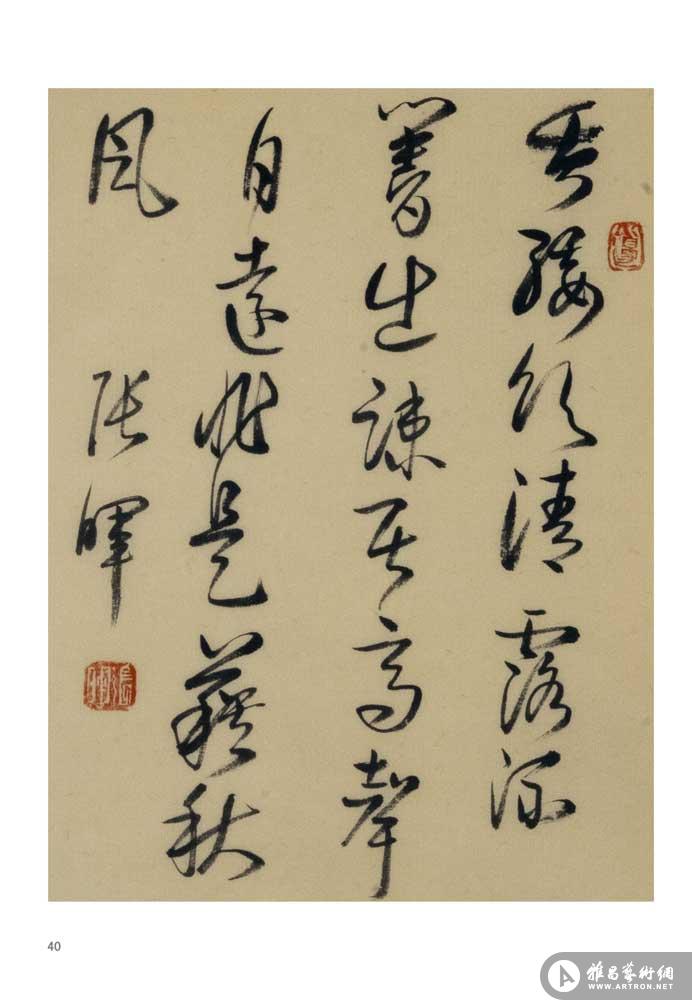 垂緌飲清露流
響出疎居高聲
自遠非是藉秋
風
張暉
40
雅昌藝術網
WWW.ARTRON.NET